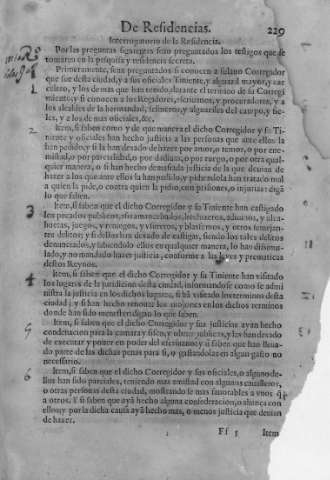 De Residencias. 229
Interrogatorio de la Residencia.
Por las preguntas siguientes sean preguntados los testigos que se
tomaren en la pesquisa y residencia secreta.
1 Primeramente, sean preguntados si conocen a fulano Corregidor
que fue desta ciudad, y a sus oficiales Tiniente, y alguazil mayor, y car
celero, y los de mas que han tenido, durante el termino de su Corregi
miento: y si conocen a los Regidores, escriuanos, y procuradores, y a
los alcaldes de la hermandad, fieles, y alguaziles del campo, y fie-
les, y a los de mas oficiales, &c.
2 Item, si saben como y de que manera el dicho Corregidor y su Ti
niente y oficiales han hecho justicia a las personas que ante ellos la
han pedido, y si la han dexado de hazer por amor, o temor, o por ene-
mistad, o por parcialidad, o por dadiuas, o por ruego, o por otra qual-
quier manera, o si han hecho demasiada justicia de la que deuian de
hazer a los que ante ellos la han pedido, y si han tratado mal
a quien la pide, o contra quien la pidio, con prisiones, o injurias: digã
lo que saben.
3 Item, si saben que el dicho Corregidor y su Tiniente han castigado
los pecados publicos, assi amancebados, hechizeros, adiuinos, y alca-
huetas, juegos, y renegos, y vsureros, y blasfemos, y otros semejan-
tes delitos, y si dellos han dexado de castigar, siendo los tales delitos
denunciados, y sabiendolo ellos en qualquier manera, lo han dissimu-
lado, y no mandado hazer justicia, conforme a las leyes y prematicas
destos Reynos.
4 Item, si saben que el dicho Corregidor y su Tiniente han visitado
los lugares de la jurisdicion desta ciudad, informandose como se admi
nistra la justicia en los dichos lugares, si hã visitado los terminos desta
ciudad, y si han hecho renouar los mojones en los dichos terminos
donde han sido menester: digan lo que saben.
5 Item, si saben que el dicho Corregidor y sus justicias ayan hecho
condenacion para la camara y fisco, y obras publicas, y las han dexado
de executar y poner en poder del escriuano, y si saben que han lleua-
do parte de las dichas penas para si, o gastandolas en algun gasto no
necessario.
6 Item, si saben que el dicho Corregidor y sus oficiales, o alguno de-
llos han sido parciales, teniendo mas amistad con algunos caualleros,
o otras personas desta ciudad, mostrando se mas fauorables a vnos q̃
a otros. Y si saben que ayã hecho alguna confederacion, o aliança con
ellos, y por la dicha causa ayã hecho mas, o menos justicia que deuian
de hazer.
Ff 5 Item